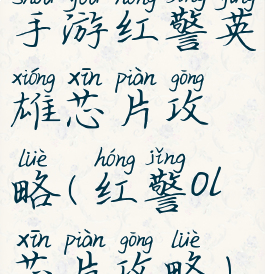 shǒu yóu hóng jǐng yīng
手游红警英
xióng xīn piàn gōng
雄芯片攻
lüè hóng jǐng
略(红警Ol
xīn piàn gōng lüè
芯片攻略)